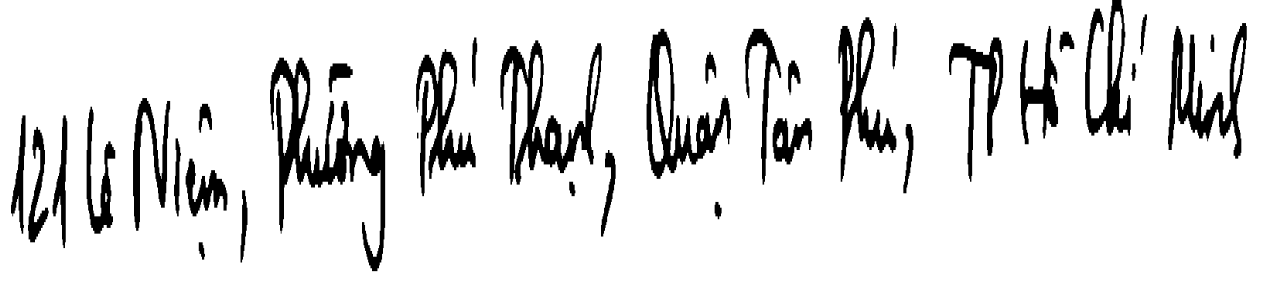 121 Lê Niệm, Phường Phú Thạnh, Quận Tân Phú, TP Hồ Chí Minh